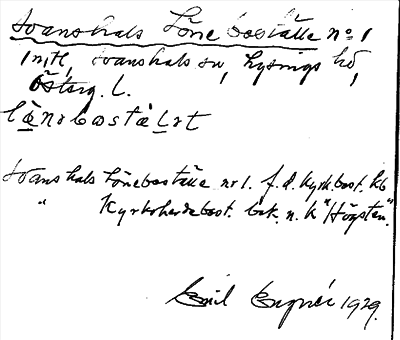 Svanshals Löneboställe no 1
1 mtl, Svanshals sn, Lysings hd,
Österg. L.
lænsbostæLst
Svanshals Löneboställe nr 1. f.d. Kyrk.bost. Kb
" Kyrkoherdebost. bek. n. k "Högsten".
Emil 1929.